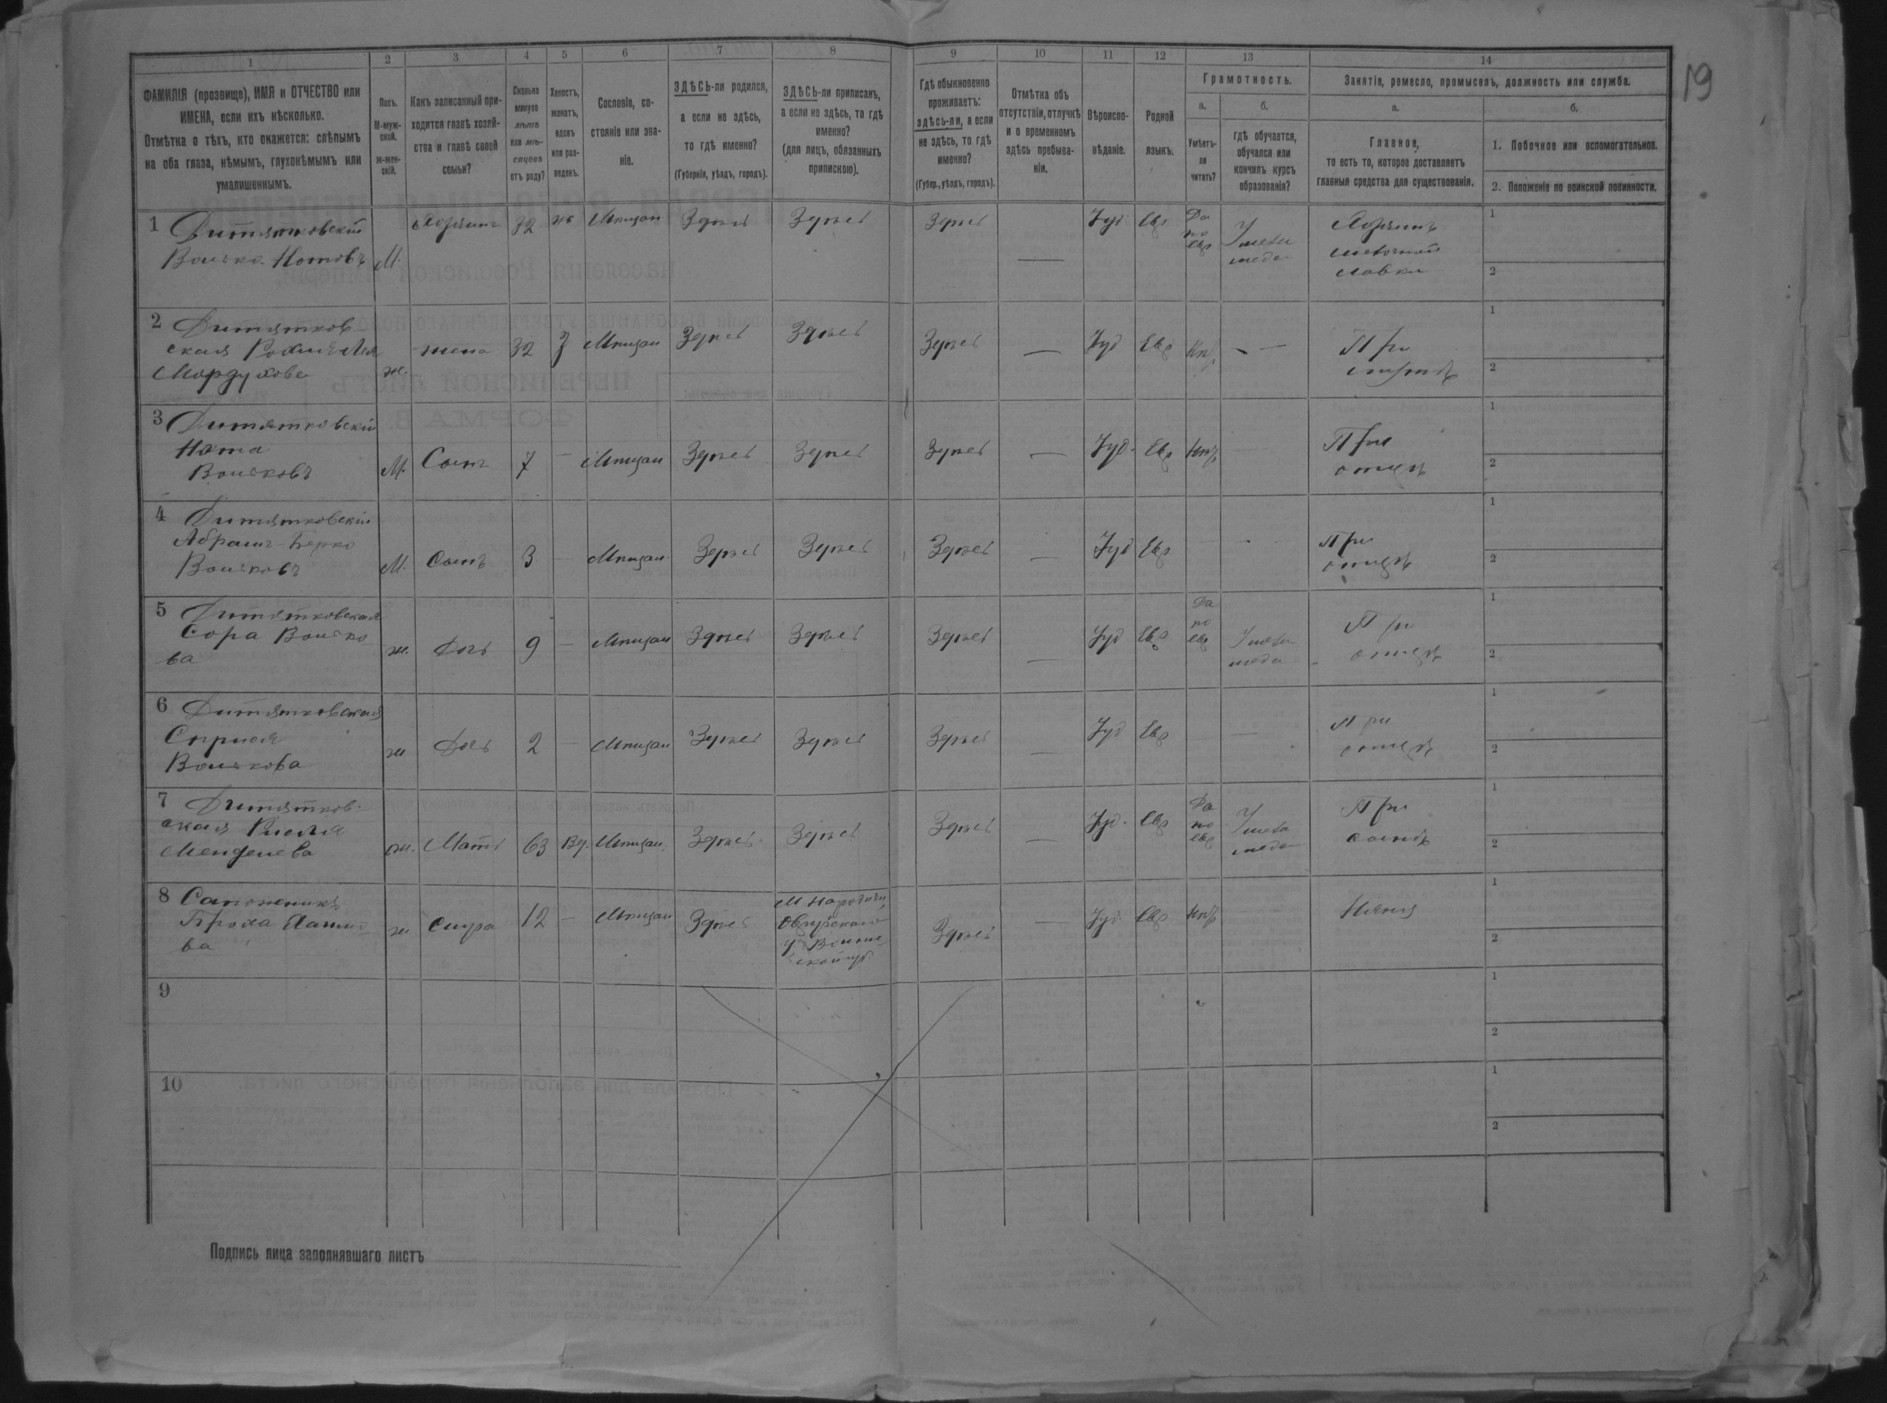 19
1 2 3 4 5 6 7 8 9 10 11 12 13 14
ФАМИЛІЯ (прозвище), ИМЯ и ОТЧЕСТВО или
ИМЕНА, если ихъ нѣсколько.
Отмѣтка о тѣхъ, кто окажется: слѣпымъ
на оба глаза, нѣмымъ, глухонѣмымъ или
умалишеннымъ.
Полъ.
М-муж-
ской.
ж-жен-
скій.
Какъ записанный при-
ходится главѣ хозяй-
ства и главѣ своей
семьи?
Сколько
минуло
лѣтъ
или мѣ-
сяцевъ
отъ роду?
Холостъ,
женатъ,
вдовъ
или раз-
веденъ.
Сословіе, со-
стояніе или зва-
ніе.
ЗДѢСЬ-ли родился,
а если не здѣсь,
то гдѣ именно?
(Губернія, уѣздъ, городъ).
ЗДѢСЬ-ли приписанъ,
а если не здѣсь, то гдѣ
именно?
(для лицъ, обязанныхъ
припискою).
Гдѣ обыкновенно
проживаетъ:
здѣсь-ли, а если
не здѣсь, то гдѣ
именно?
(Губер., уѣздъ, городъ).
Отмѣтка объ
отсутствіи, отлучкѣ
и о временномъ
здѣсь пребыва-
ніи.
Вѣроиспо-
вѣданіе.
Родной
языкъ.
Грамотность.
а.
Умѣетъ-
ли
читать?
б.
гдѣ обучается,
обучался или
кончилъ курсъ
образованія?
Занятіе, ремесло, промыселъ, должность или служба.
а.
Главное,
то есть то, которое доставляетъ
главныя средства для существованія.
б.
1. Побочное или вспомогательное.
2. Положеніе по воинской повинности.
1 Дитятковскій
Волько Нотовъ М. Хозяинъ 32 ж Мѣщан Здѣсь Здѣсь Здѣсь — Іуд Евр
Да
по
евр
1
2
2 Дитятков
ская
Мордухова ж. жена 32 З Мѣщан Здѣсь Здѣсь Здѣсь — Іуд Евр Нѣт — При
мужѣ
1
2
3 Дитятковскій
Нота
Вольковъ М Сынъ 7 — Мѣщан Здѣсь Здѣсь Здѣсь — Іуд. Евр Нѣт — При
отцѣ
1
2
4 Дитятковскій
Абрамъ-Берко
Вольковъ М. Сынъ 3 — Мѣщан Здѣсь Здѣсь Здѣсь — Іуд Евр — — При
отцѣ
1
2
5 Дитятковская
Сора Волько
ва ж. Дочь 9 — Мѣщан Здѣсь Здѣсь Здѣсь — Іуд Евр
Да
по
евр
При
отцѣ
1
2
6 Дитятковская
Волькова ж Дочь 2 — Мѣщан Здѣсь Здѣсь Здѣсь — Іуд Евр — При
отцѣ
1
2
7 Дитятков-
ская
Менделева ж. Мать 63 Вд. Мѣщан. Здѣсь Здѣсь Здѣсь — Іуд. Евр
Да
по
евр
При
сынѣ
1
2
8 Сапожникъ
Броха
ва ж 12 — Мѣщан Здѣсь
М. Народичи,
Овручскаго
у Волын
ской губ
Здѣсь — Іуд. Евр Нѣт — Няня
1
2
9
1
2
10
1
2
Подпись лица заполнявшаго листъ